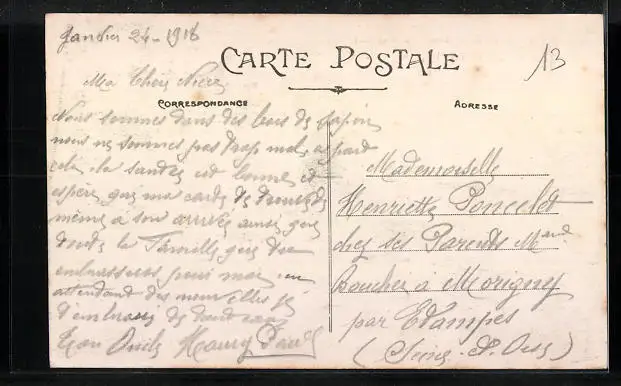 Janvier 24-1916
13
CARTE POSTALE
Ma Chère Nièce
CORRESPONDANCE
ADRESSE
Nous sommes dans des bois de sapin
nous ne sommes pas trop mal, a part
cela la santée est bonne et
espère que ma carte te trouve de
même a son arrivée ainsi que
toute la Famille que tu
embrasseras pour moi en
attendant des nouvelles je
t'embrasse de tout
Ton Oncle
Mademoiselle
Henriette Poncelet
chez ses Parents Md
Boucher a Morigny
par Etampes
(Seine-et-Oise)